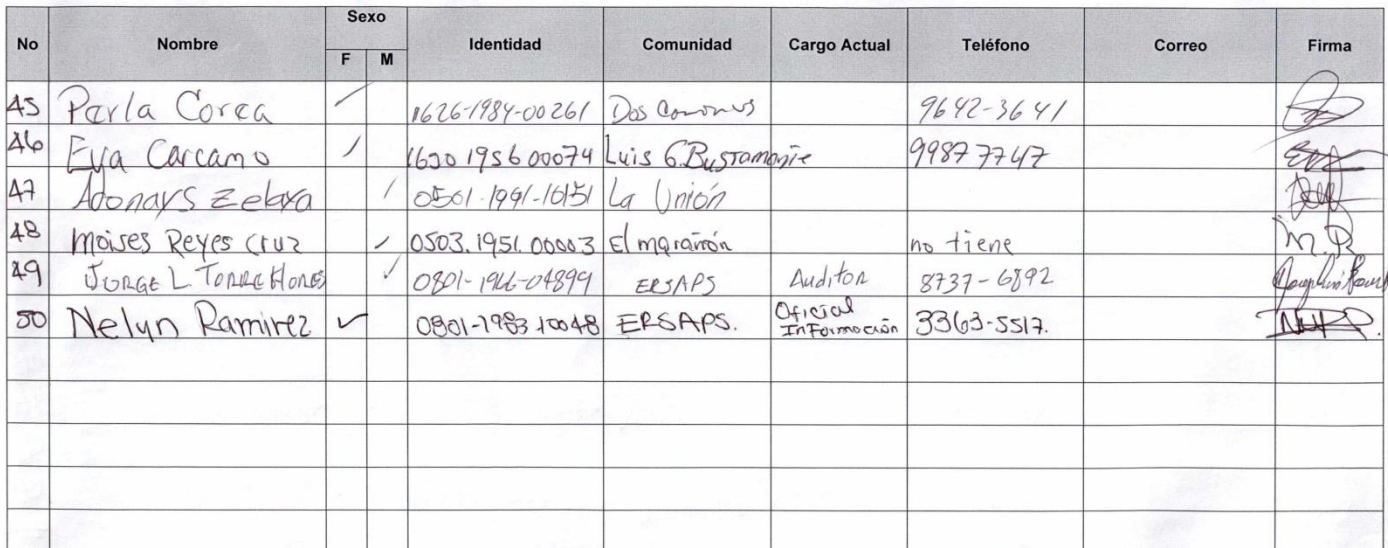 No Nombre Sexo F M Identidad Comunidad Cargo Actual Teléfono Correo Firma
45 Perla Corea / 1626-1984-00261 Dos 9642-3641
46 Eva Carcamo / 1620 1956 00074 Luis G. Bustamante 9987 7747
47 Adonays Zelaya / 0501-1991-10151 La Unión
48 Moises Reyes Cruz / 0503.1951.00003 El marañón no tiene M.R.
49 Jorge L Torre Flores ✓ 0801-1966-04899 ERSAPS Auditor 8737-6892
50 Nelyn Ramirez ✓ 0801-1983-10048 ERSAPS. Oficial Información 3363-5517.